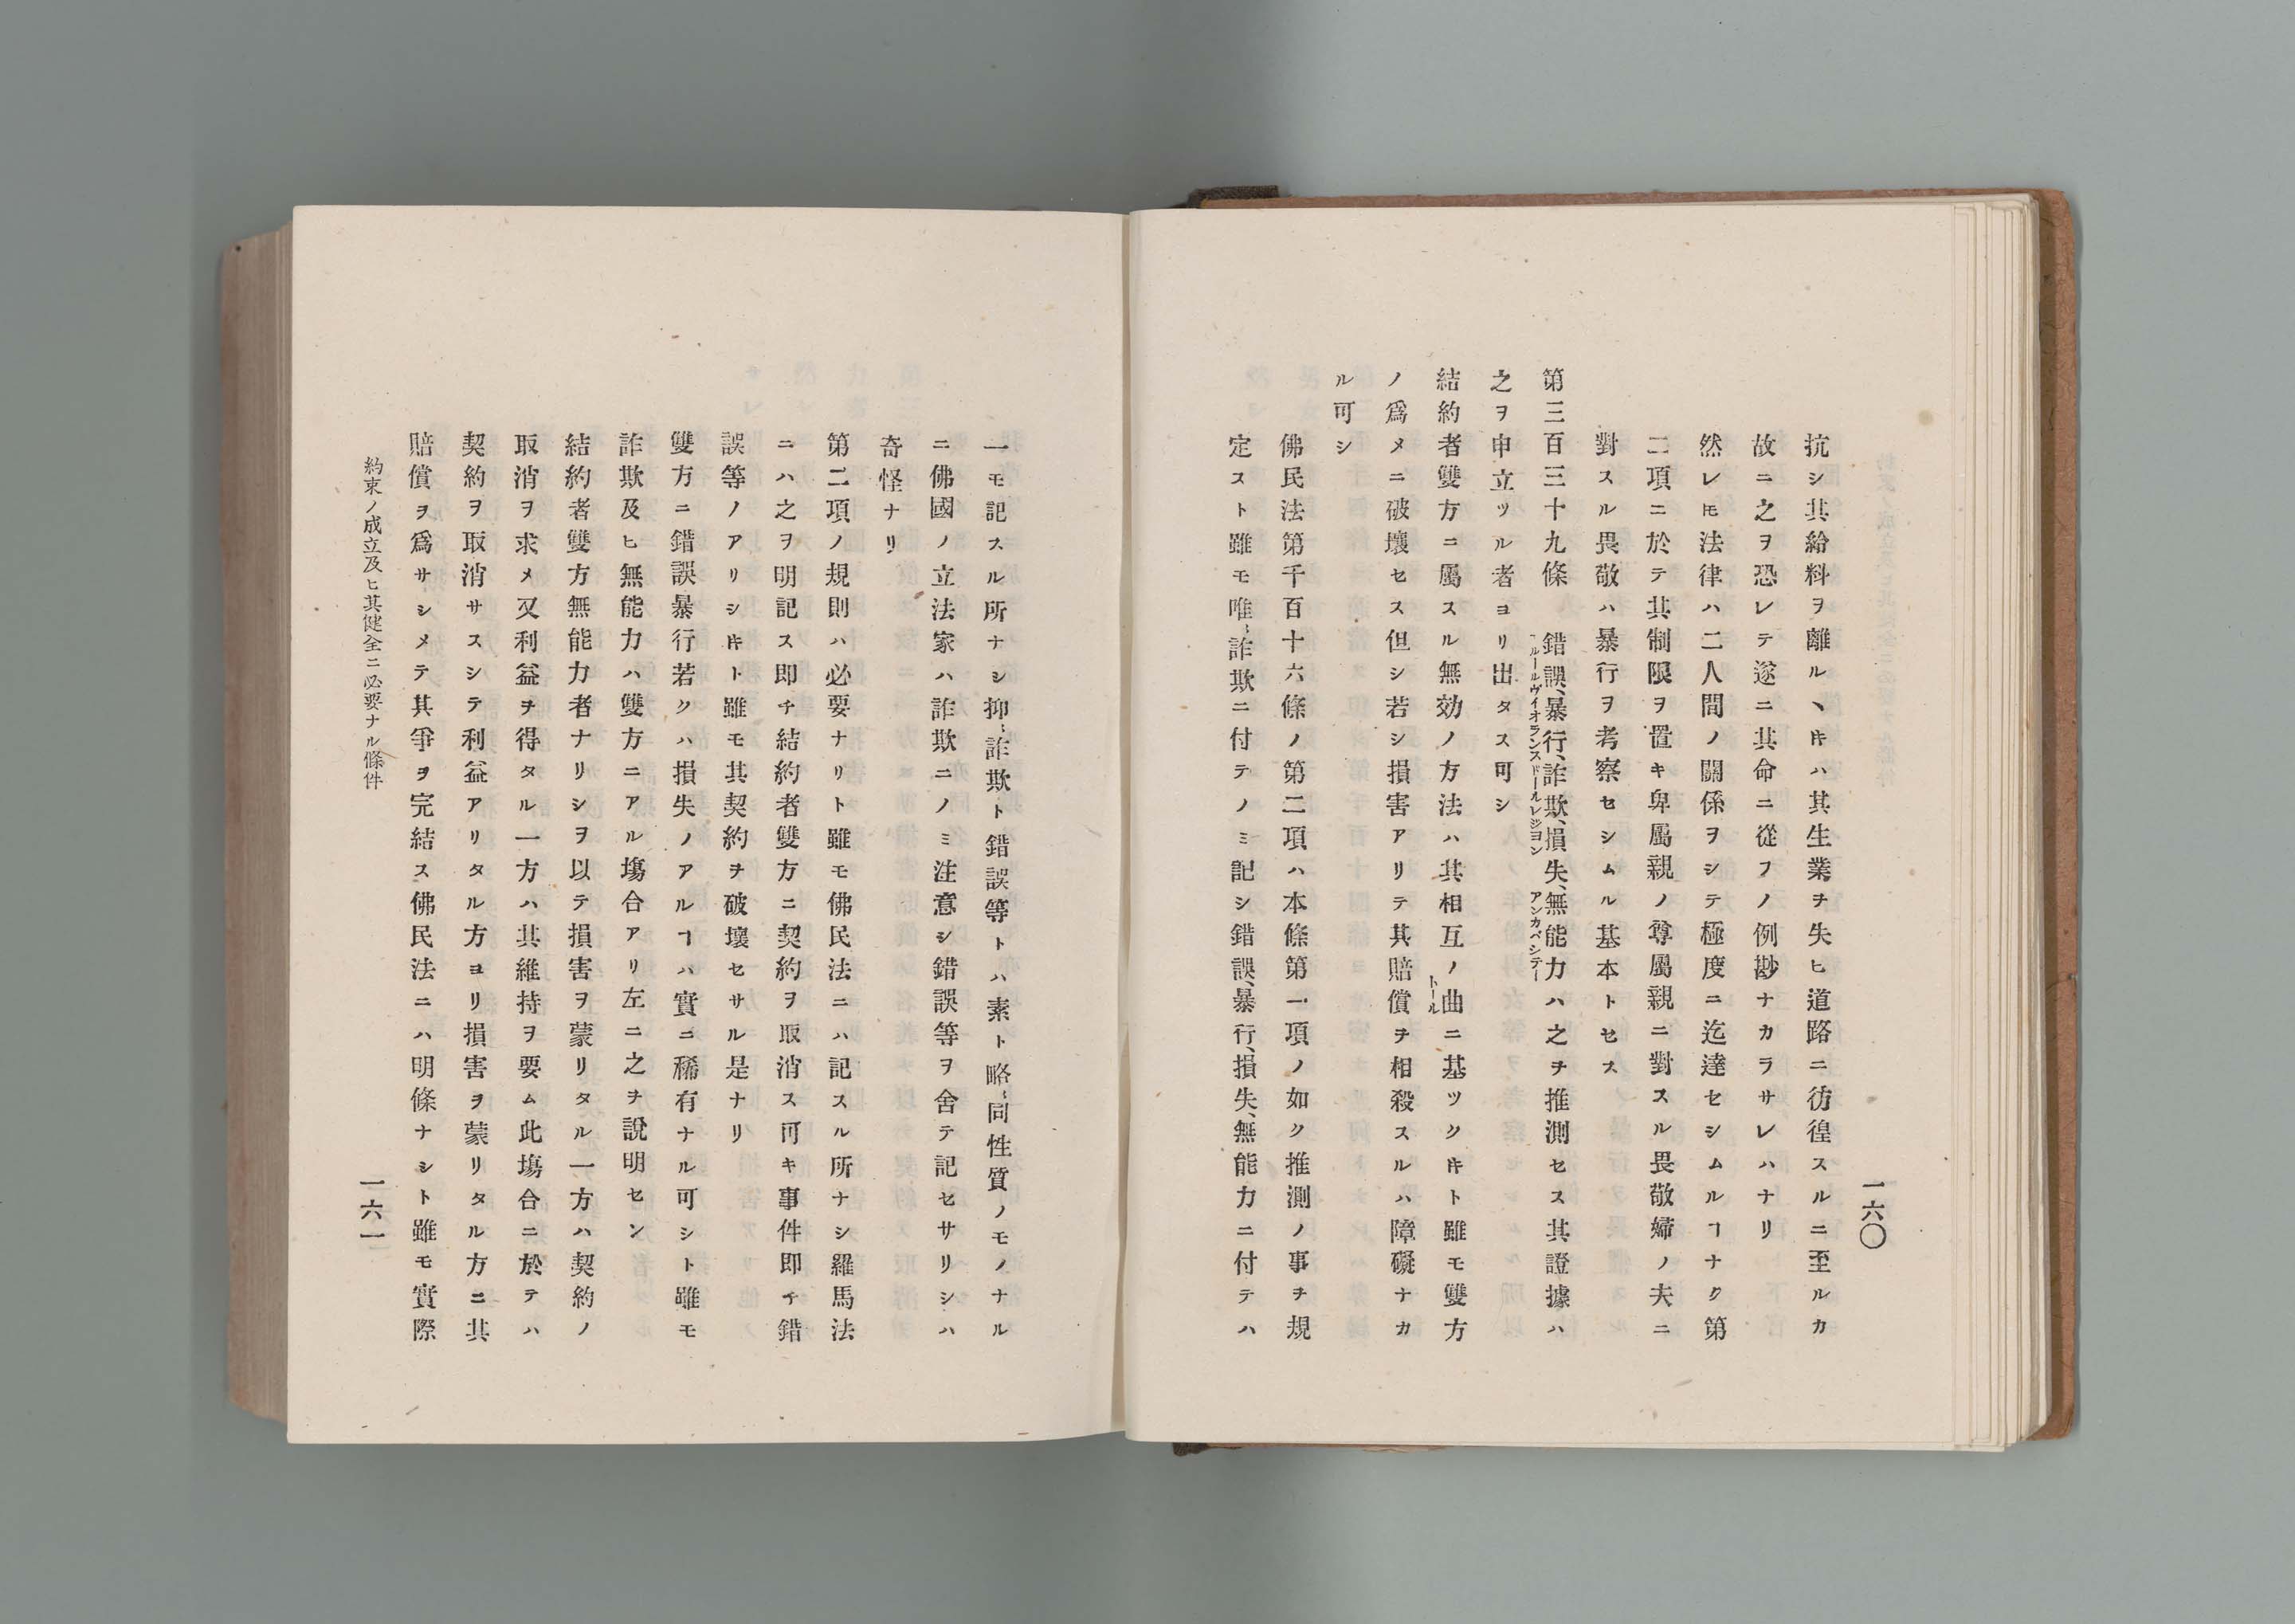 抗シ其給料ヲ離ル丶𪜈ハ其生業ヲ失ヒ道路ニ彷徨スルニ至ルカ
故ニ之ヲ恐レテ遂ニ其命ニ從フノ例尠ナカラサレハナリ
然レ𪜈法律ハ二人間ノ關係ヲシテ極度ニ迄達セシムルヿナク第
二項ニ於テ其制限ヲ置キ卑屬親ノ尊屬親ニ對スル畏敬婦ノ夫ニ
對スル畏敬ハ暴行ヲ考察セシムル基本トセス
第三百三十九條 錯誤、暴行、詐欺、損失、無能力ハ之ヲ推測セス其證據ハ
ルールヴイオランスドールレジヨン アンカパシテー
之ヲ申立ツル者ヨリ出タス可シ
結約者雙方ニ屬スル無効ノ方法ハ其相互ノ曲ニ基ツクキト雖モ雙方
トール
ノ爲メニ破壞セス但シ若シ損害アリテ其賠償ヲ相殺スルハ障礙ナカ
ル可シ
佛民法第千百十六條ノ第二項ハ本條第一項ノ如ク推測ノ事ヲ規
定スト雖モ唯〻詐欺ニ付テノミ記シ錯誤、暴行、損失、無能力ニ付テハ
一六〇
一モ記スル所ナシ抑〻詐欺ト錯誤等トハ素ト略〻同性質ノモノナル
ニ佛國ノ立法家ハ詐欺ニノミ注意シ錯誤等ヲ舍テ記セサリシハ
奇怪ナリ
第二項ノ規則ハ必要ナリト雖モ佛民法ニハ記スル所ナシ羅馬法
ニハ之ヲ明記ス即チ結約者雙方ニ契約ヲ取消ス可キ事件即チ錯
誤等ノアリシ𪜈ト雖モ其契約ヲ破壞セサル是ナリ
雙方ニ錯誤暴行若クハ損失ノアルヿハ實ニ稀有ナル可シト雖モ
詐欺及ヒ無能力ハ雙方ニアル塲合アリ左ニ之ヲ說明セン
結約者雙方無能力者ナリシヲ以テ損害ヲ蒙リタル一方ハ契約ノ
取消ヲ求メ又利益ヲ得タル一方ハ其維持ヲ要ム此塲合ニ於テハ
契約ヲ取消サスシテ利益アリタル方ヨリ損害ヲ蒙リタル方ニ其
賠償ヲ爲サシメテ其爭ヲ完結ス佛民法ニハ明條ナシト雖モ實際
約束ノ成立及ヒ其健全ニ必要ナル條件
一六一